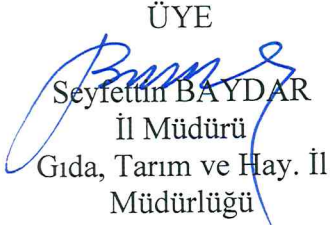 ÜYE
Seyfettin BAYDAR
İl Müdürü
Gıda, Tarım ve Hay. İl
Müdürlüğü